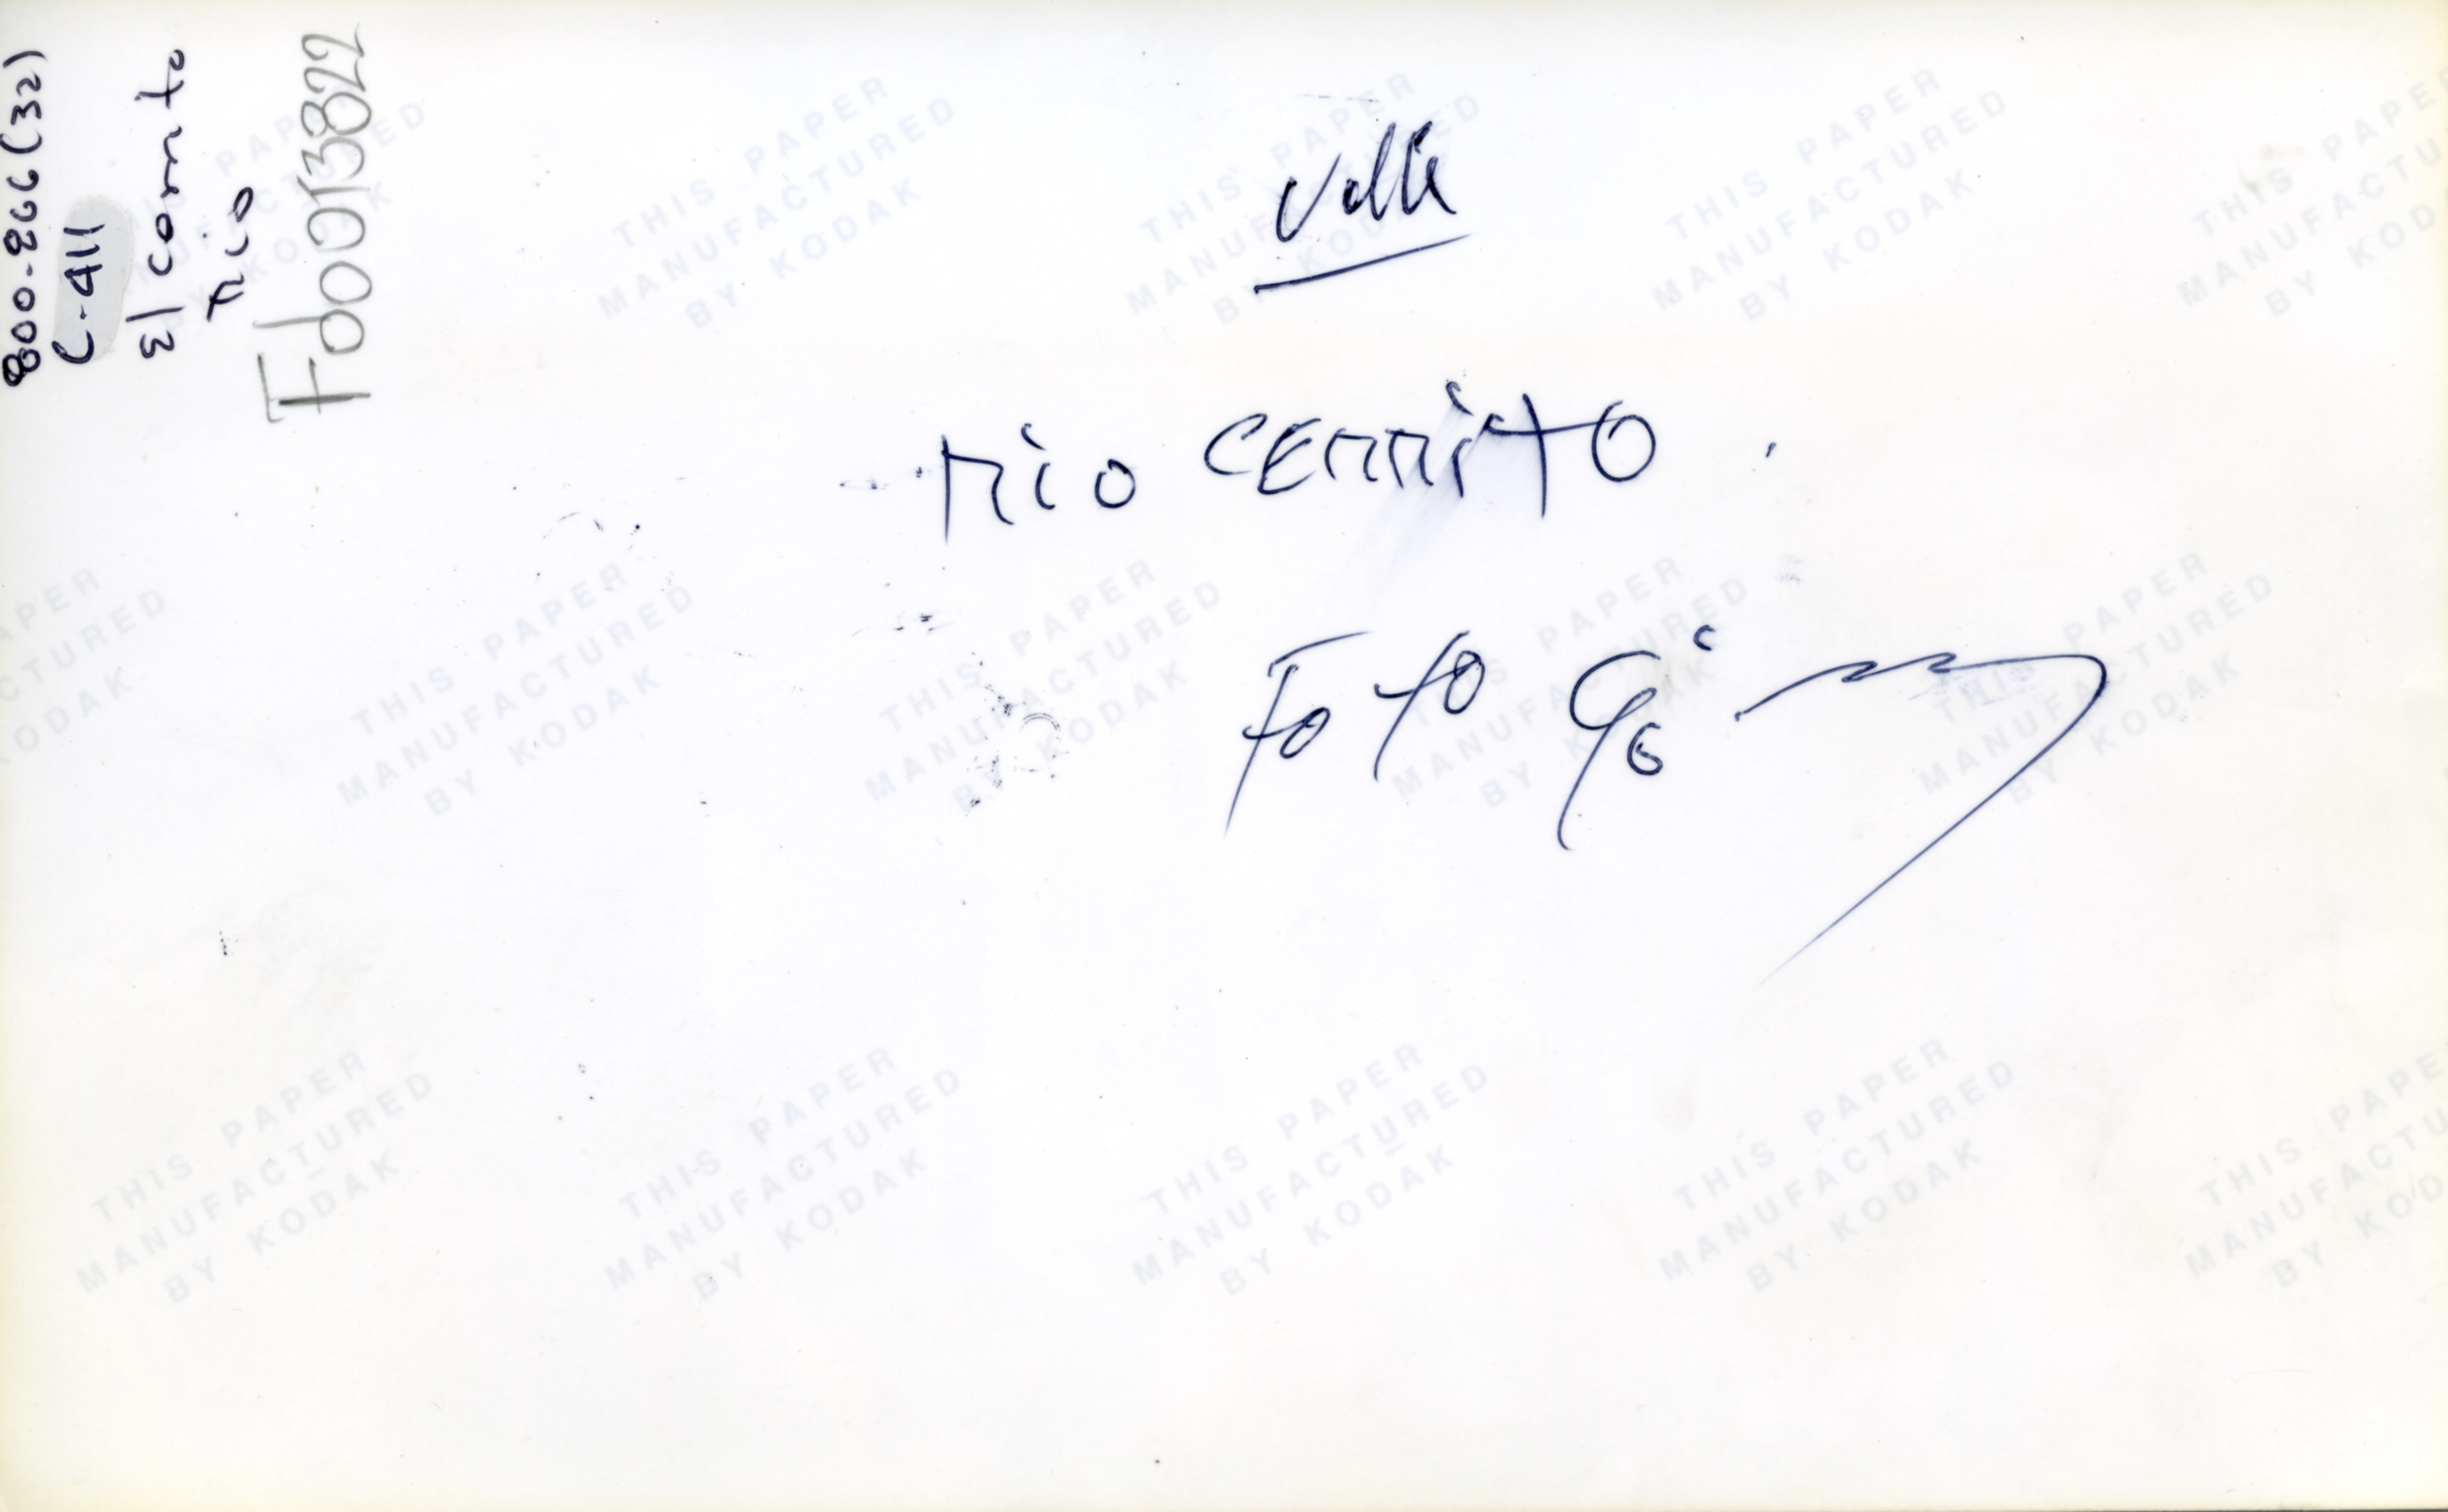 800-266(32)
C-411
El corrito
rio
Fb0013822
Valle
rio cerrito
Foto
THIS PAPER
MANUFACTURED
BY KODAK